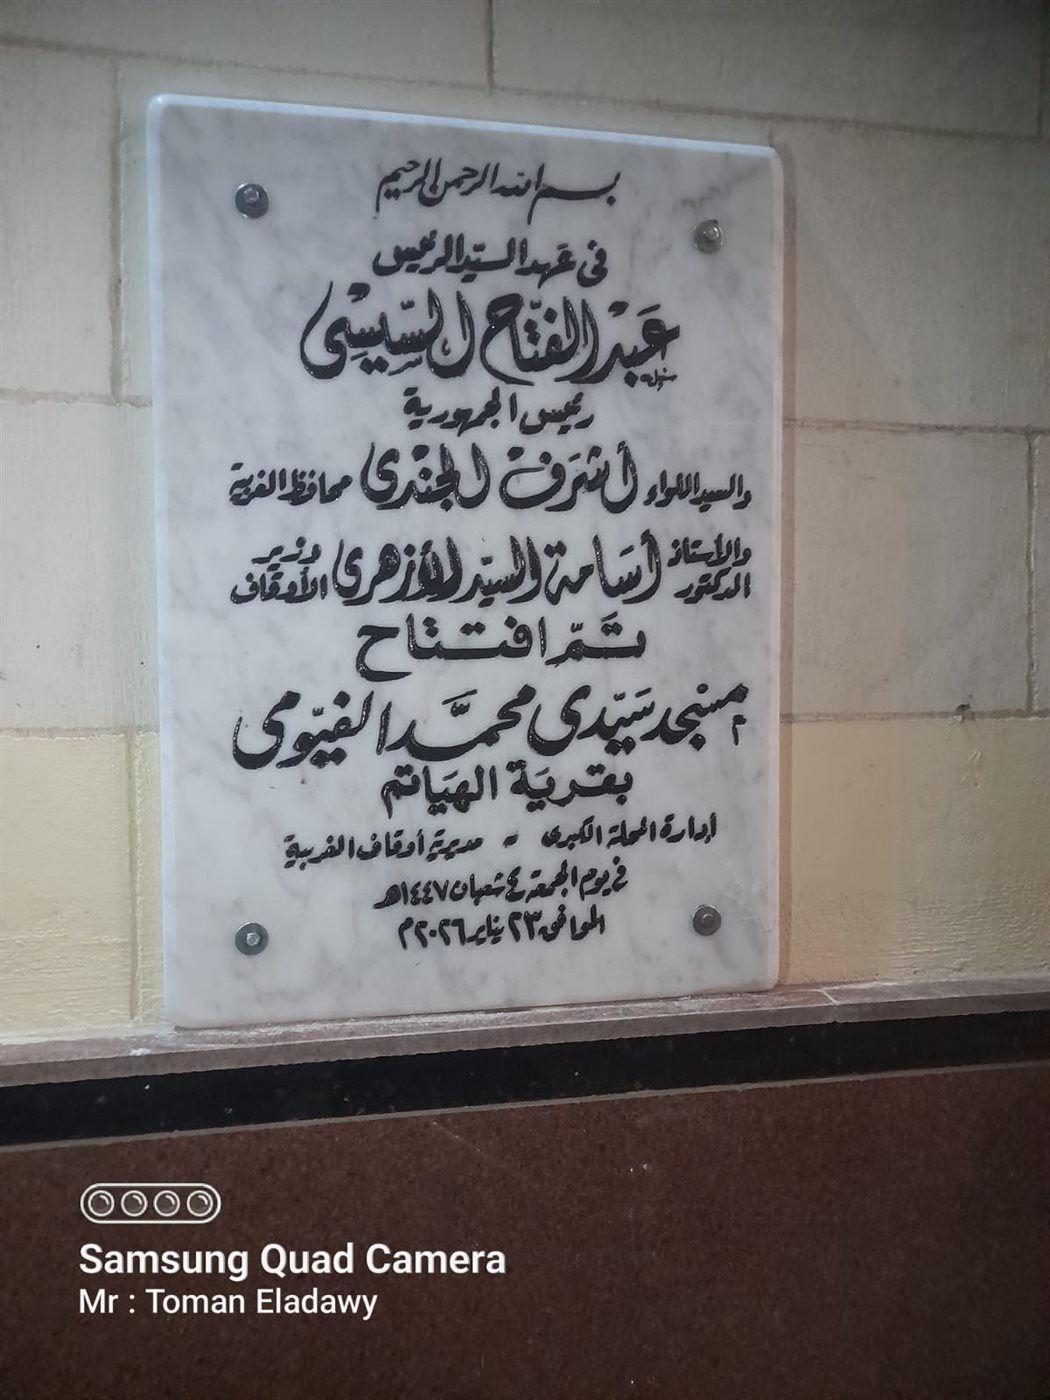 بسم الله الرحمن الرحيم
في عهد السيد الرئيس
عَبْد الفتَّاح السِّيسِي
رئيس الجمهورية
والسيد اللواء أشرَف الجنْدى محافظ الغربية
والأستاذ الدكتور أسَامة السيّد الأزهرى وزير الأوقاف
تَمّ افتتاح
مسْجد سَيّدى محمَّد الفيّومى
بقريَة الهيَاتم
إدارة المحلة الكبرى - مديرية أوقاف الغربية
في يوم الجمعة ٤ شعبان ١٤٤٧هـ
الموافق ٢٣ يناير ٢٠٢٦م
Samsung Quad Camera
Mr : Toman Eladawy